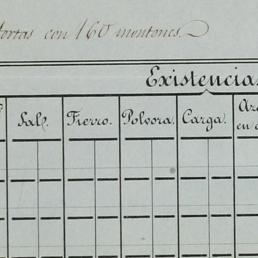 tortas con 160 montones.
Existencia
Sal. Fierro. Polvora. Carga.
en